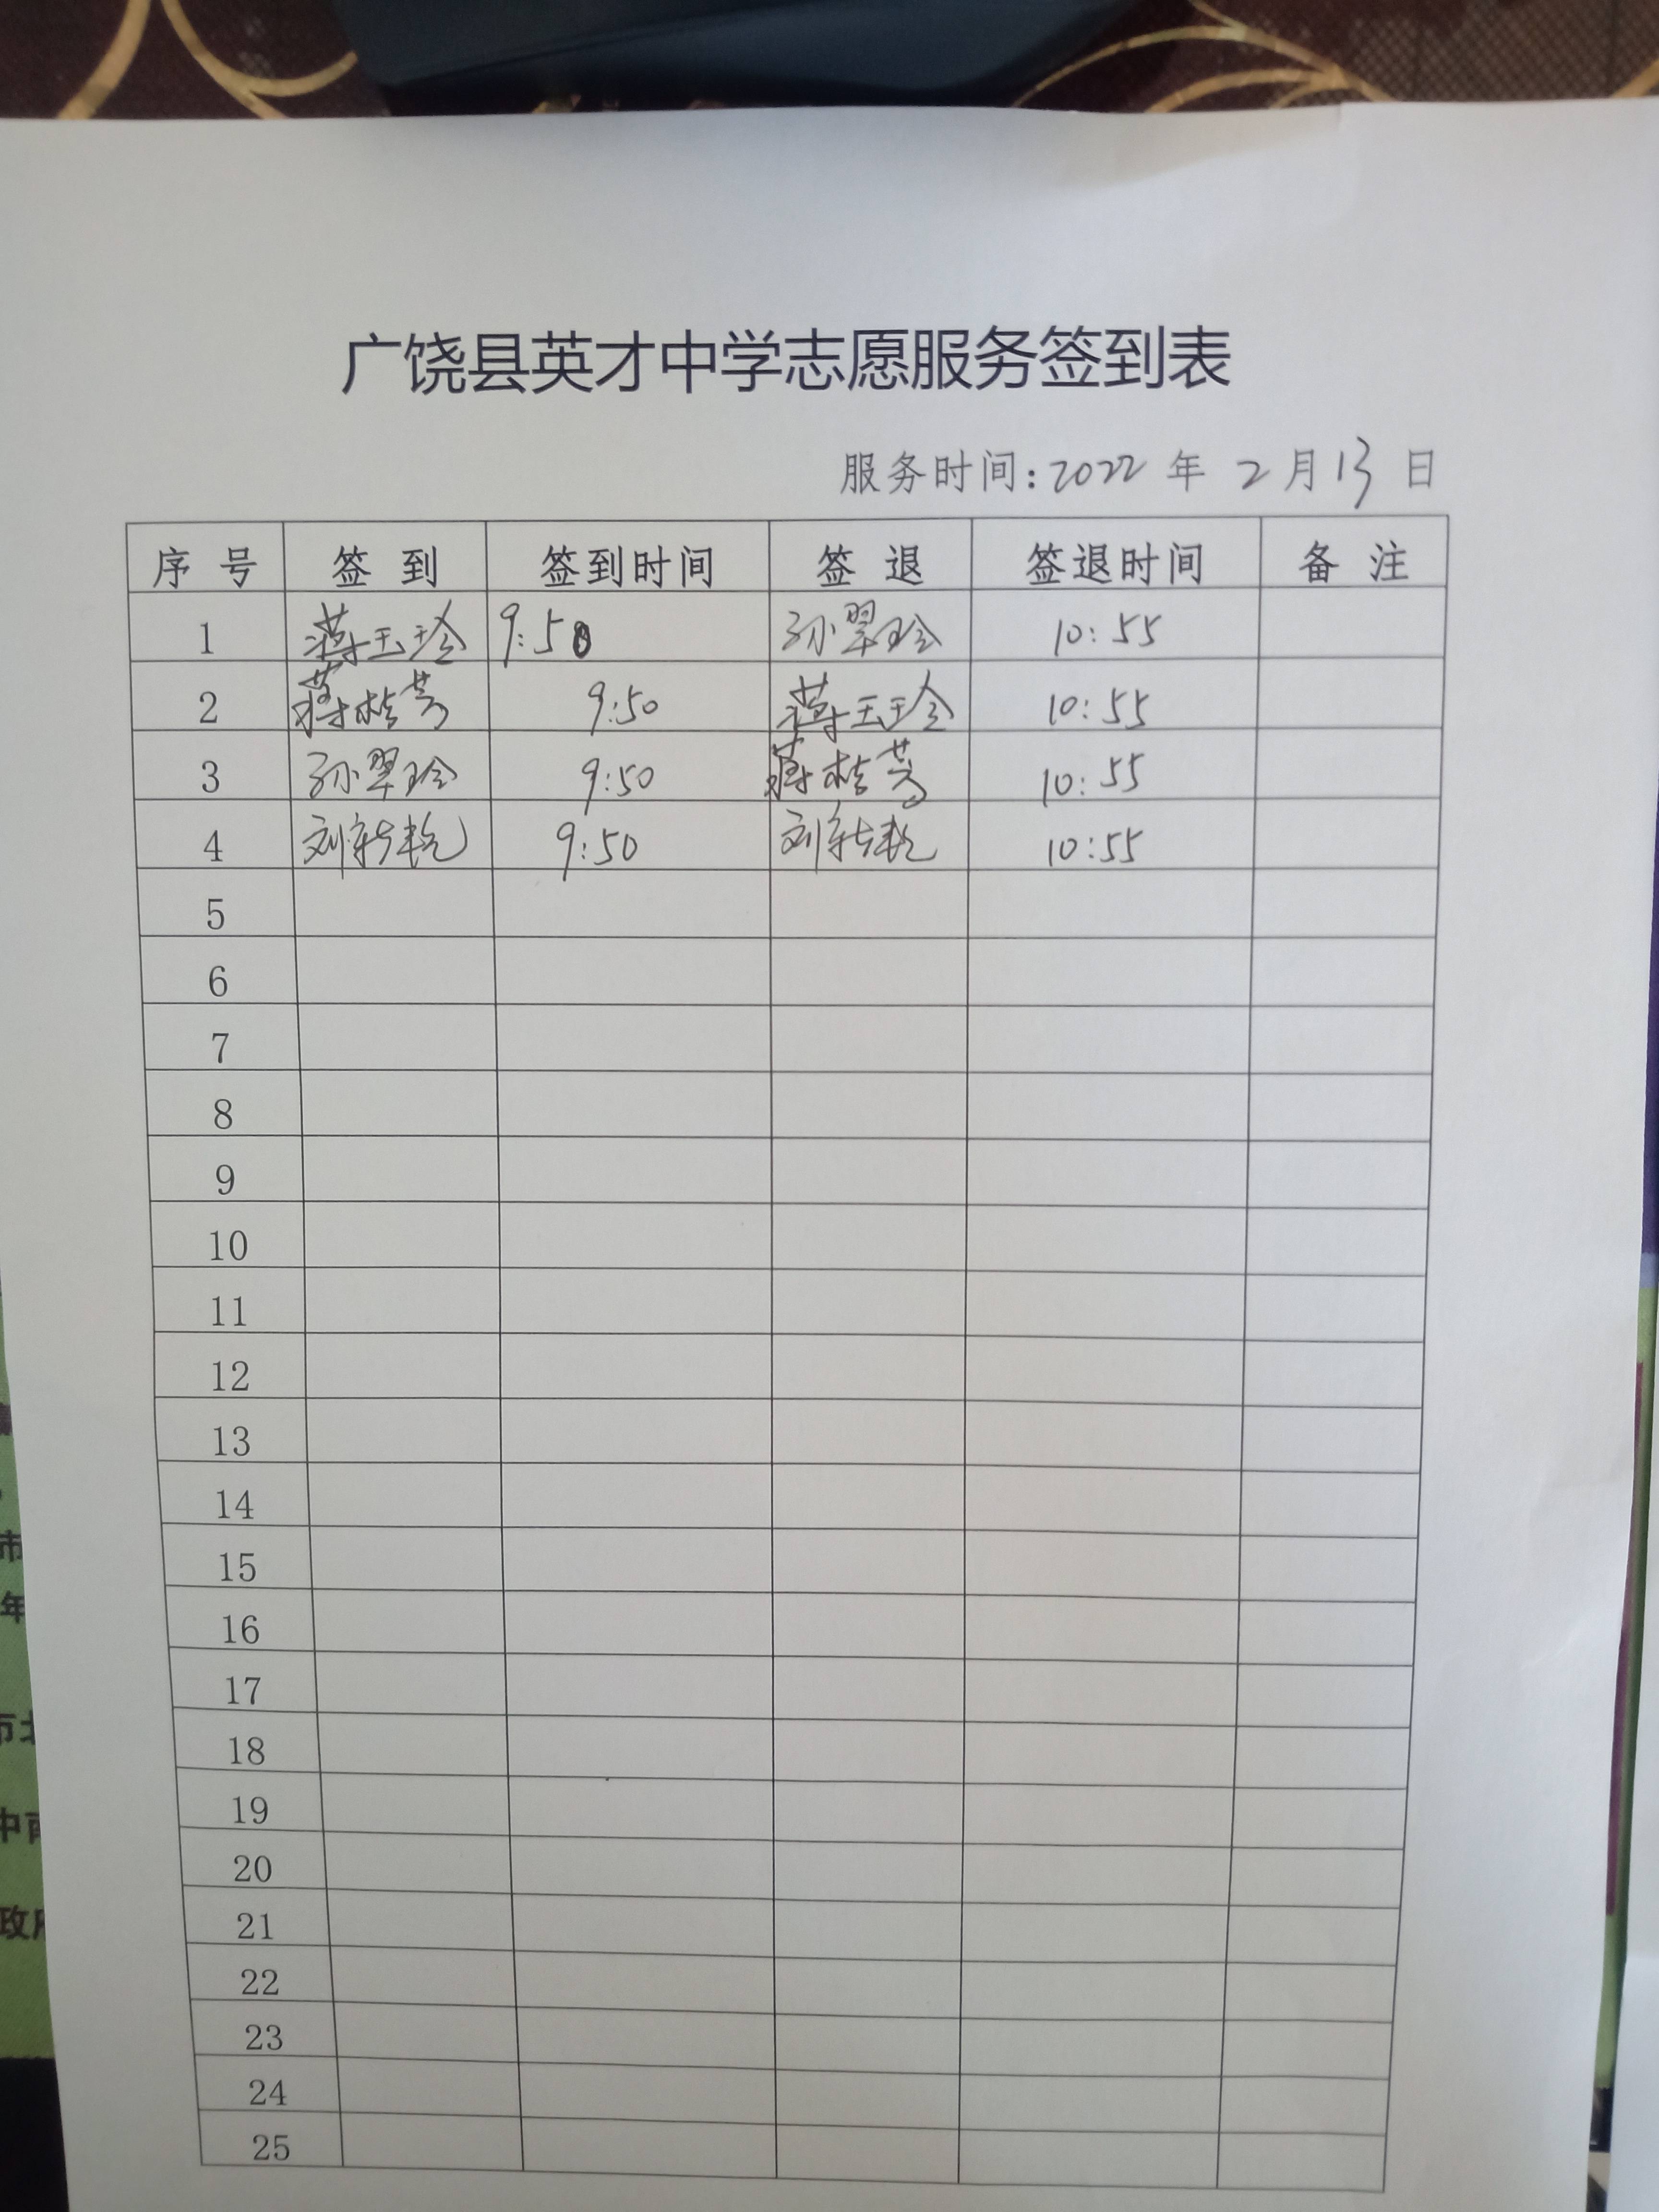 广饶县英才中学志愿服务签到表
服务时间:2022 年 2 月 13 日
序 号 签 到 签到时间 签 退 签退时间 备 注
1 蒋玉玲 9:50 孙翠玲 10:55
2 蒋桂芳 9:50 蒋玉玲 10:55
3 孙翠玲 9:50 蒋桂芳 10:55
4 9:50 10:55
5
6
7
8
9
10
11
12
13
14
15
16
17
18
19
20
21
22
23
24
25
市
年
市北
中南
政府